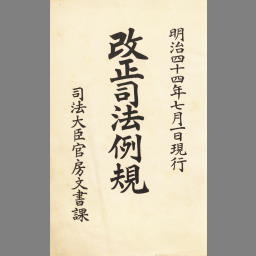 明治四十四年七月一日現行
改正司法例規
司法大臣官房文書課